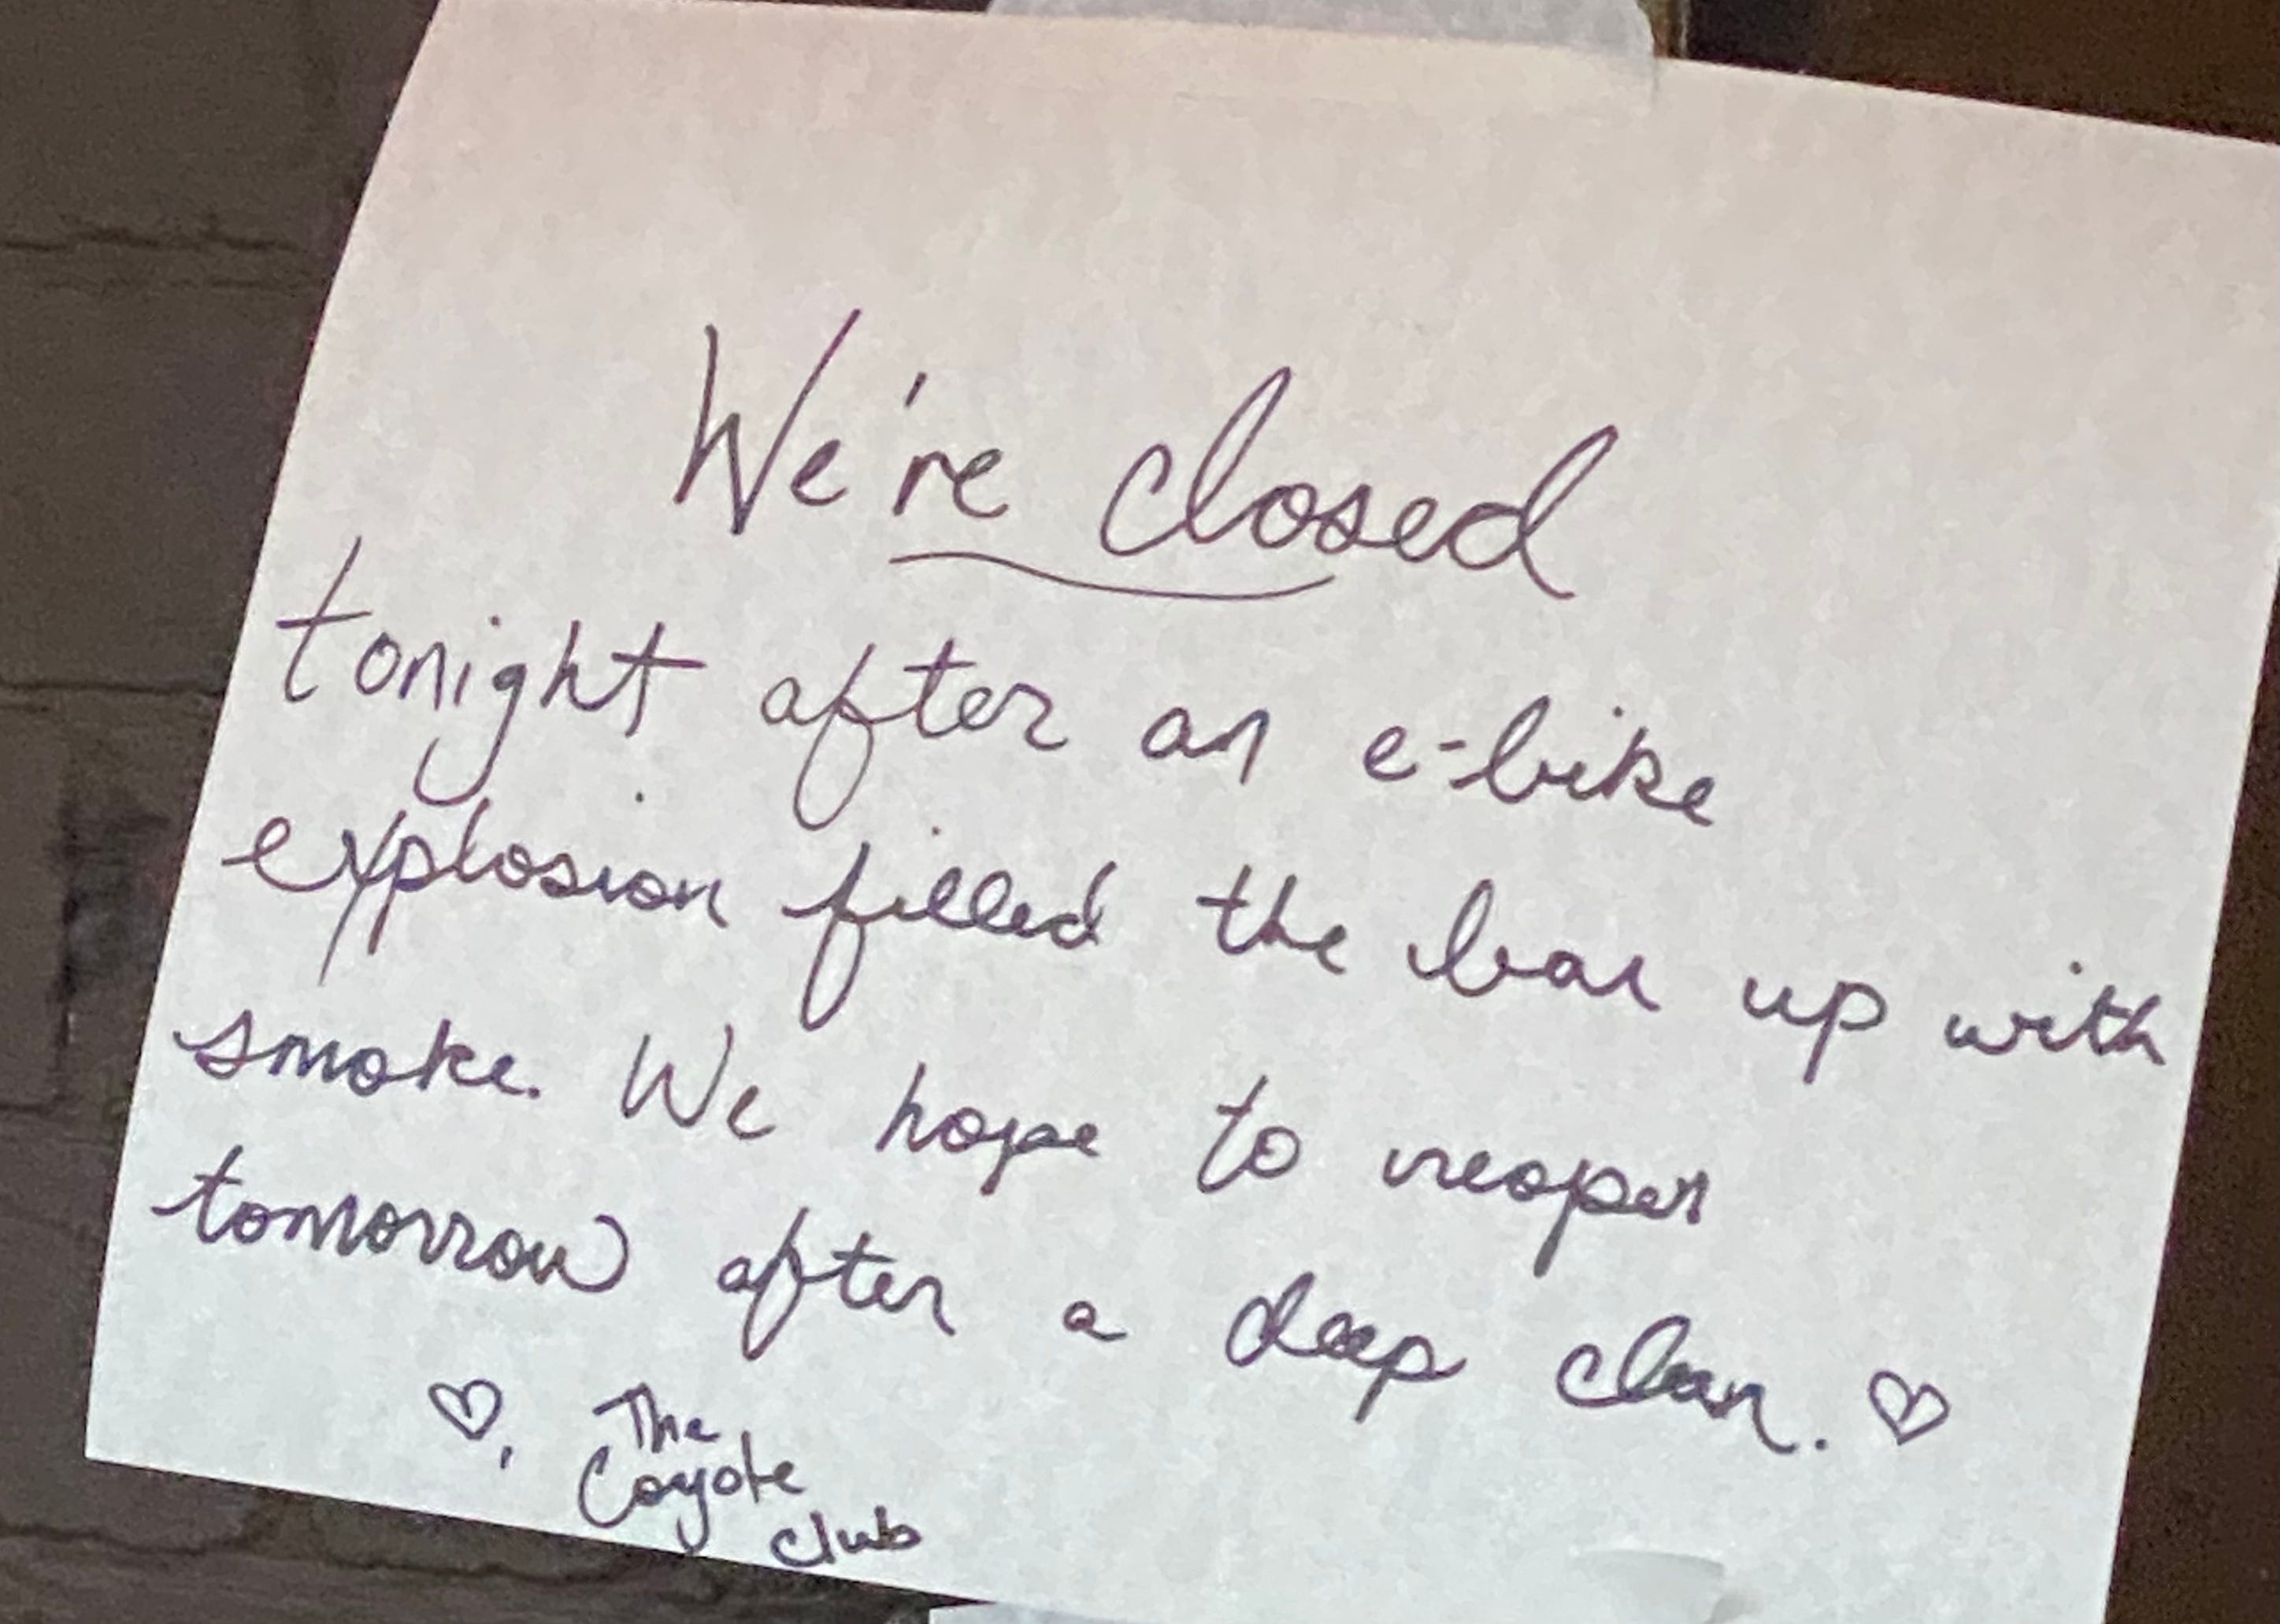 We're closed
tonight after an e-bike
explosion filled the bar up with
smoke. We hope to reopen
tomorrow after a deep clean. ♡
♡, The
Coyote
club